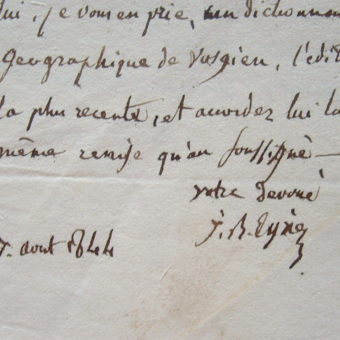 lui, je vous en prie, un dictionnai
Geographique de Vosgien, l'édit
la plus recente, et accordez lui la
même remise qu'au soussigné
votre devoué
J. B. Eyriès
7. aout 1844